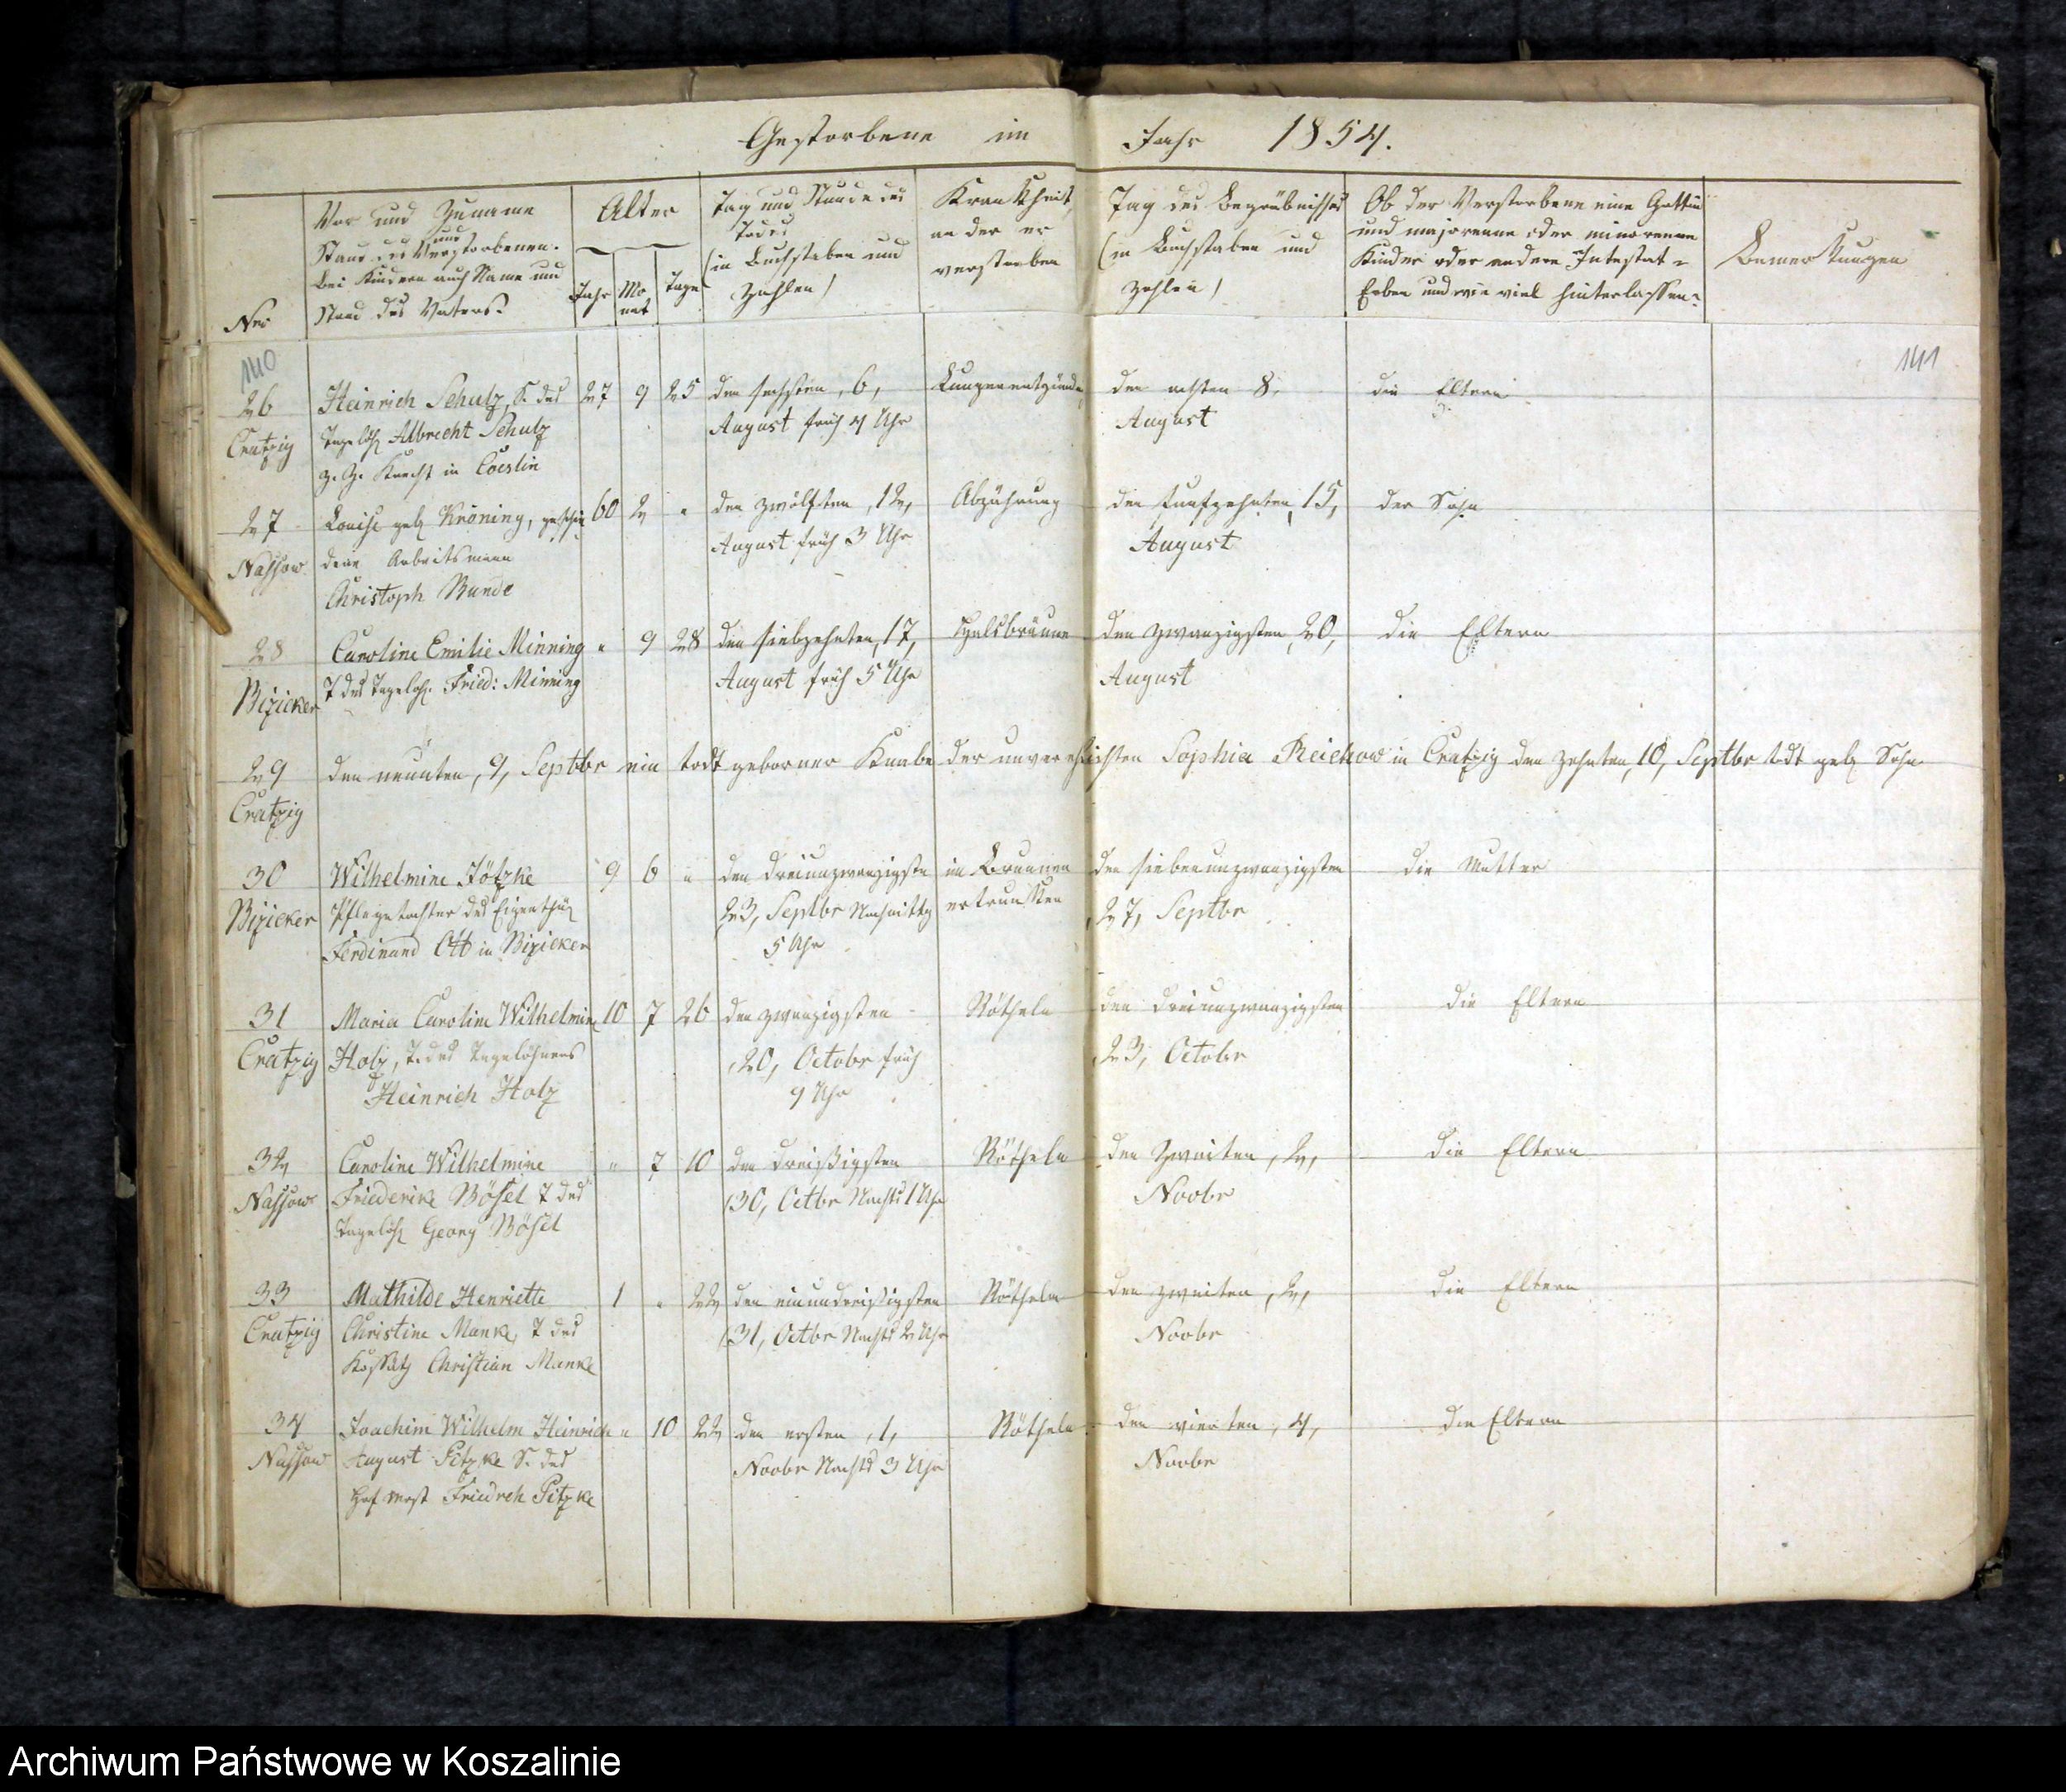 Gestorbene im Jahr 1854.
Nro
Vor und Zuname
und
Stand des Verstorbenen.
bei Kindern auch Name und
Stand des Vaters.
Alter
Jahr
Mo
nat
Tage
Tag und Stunde des
Todes
(in Buchstaben und
Zahlen)
Krankheit,
an der er
verstorben
Tag des Begräbnisses
(in Buchstaben und
Zahlen)
Ob der Verstorbene eine Gattin
und majorenne oder minorenne
Kinder oder andere Intestat-
Erben und wie viel hinterlassen?
Bemerkungen
140
141
26 Heinrich Schulz, S. des 27 9 25 den sechsten, 6, Lungenentzünd. den achten 8, die Eltern
Cratzig Tagelöh Albrecht Schulz August früh 4 Uhr August
z. Z. Knecht in Coeslin
27 Louise geb Kröning, geschie 60 2 " den zwölften, 12, Abzehrung den funfzehnten, 15, der Sohn
Nassow dene Arbeitsmann August früh 3 Uhr August
Christoph Bunde
28 Caroline Emilie Minning " 9 28 den siebzehnten, 17, Halsbräune den zwanzigsten, 20, die Eltern
Bizicker T des Tagelöh. Fried: Minning August früh 5 Uhr August
29 den neunten, 9, Septbr ein todt geborner Knabe der unverehlichten Sophia Reichow in Cratzig den zehnten, 10, Septbr todt geb Sohn
Cratzig
30 Wilhelmine Jötzke 9 6 " den dreiunzwanzigste im Brunnen den siebenunzwanzigsten die Mutter
Bizicker Pflegetochter des Eigenthü 23, Septbr Nachmittg ertrunken 27, Septbr
Ferdinand Ott in Bizicker 5 Uhr
31 Maria Caroline Wilhelmine 10 7 26 den zwanzigsten Rötheln den dreiunzwanzigsten die Eltern
Cratzig Holz, T. des Tagelöhners 20, Octobr früh 23, Octobr
Heinrich Holz 9 Uhr
32 Caroline Wilhelmine " 7 10 den dreißigsten Rötheln den zweiten, 2, die Eltern
Nassow Friederike Bösel T des 30, Octbr Nachts 1 Uhr Novbr
Tagelöh Georg Bösel
33 Mathilde Henriette 1 " 22 den einundreißigsten Rötheln den zweiten, 2, die Eltern
Cratzig Christine Manke, T des 31, Octbr Nachts 2 Uhr Novbr
Kossäth Christian Manke
34 Joachim Wilhelm Heinrich " 10 22 den ersten, 1, Rötheln den vierten, 4, die Eltern
Nassow August Pitzke S. des Novbr Nachts 3 Uhr Novbr
Hof Friedrch Pitzke
Archiwum Państwowe w Koszalinie